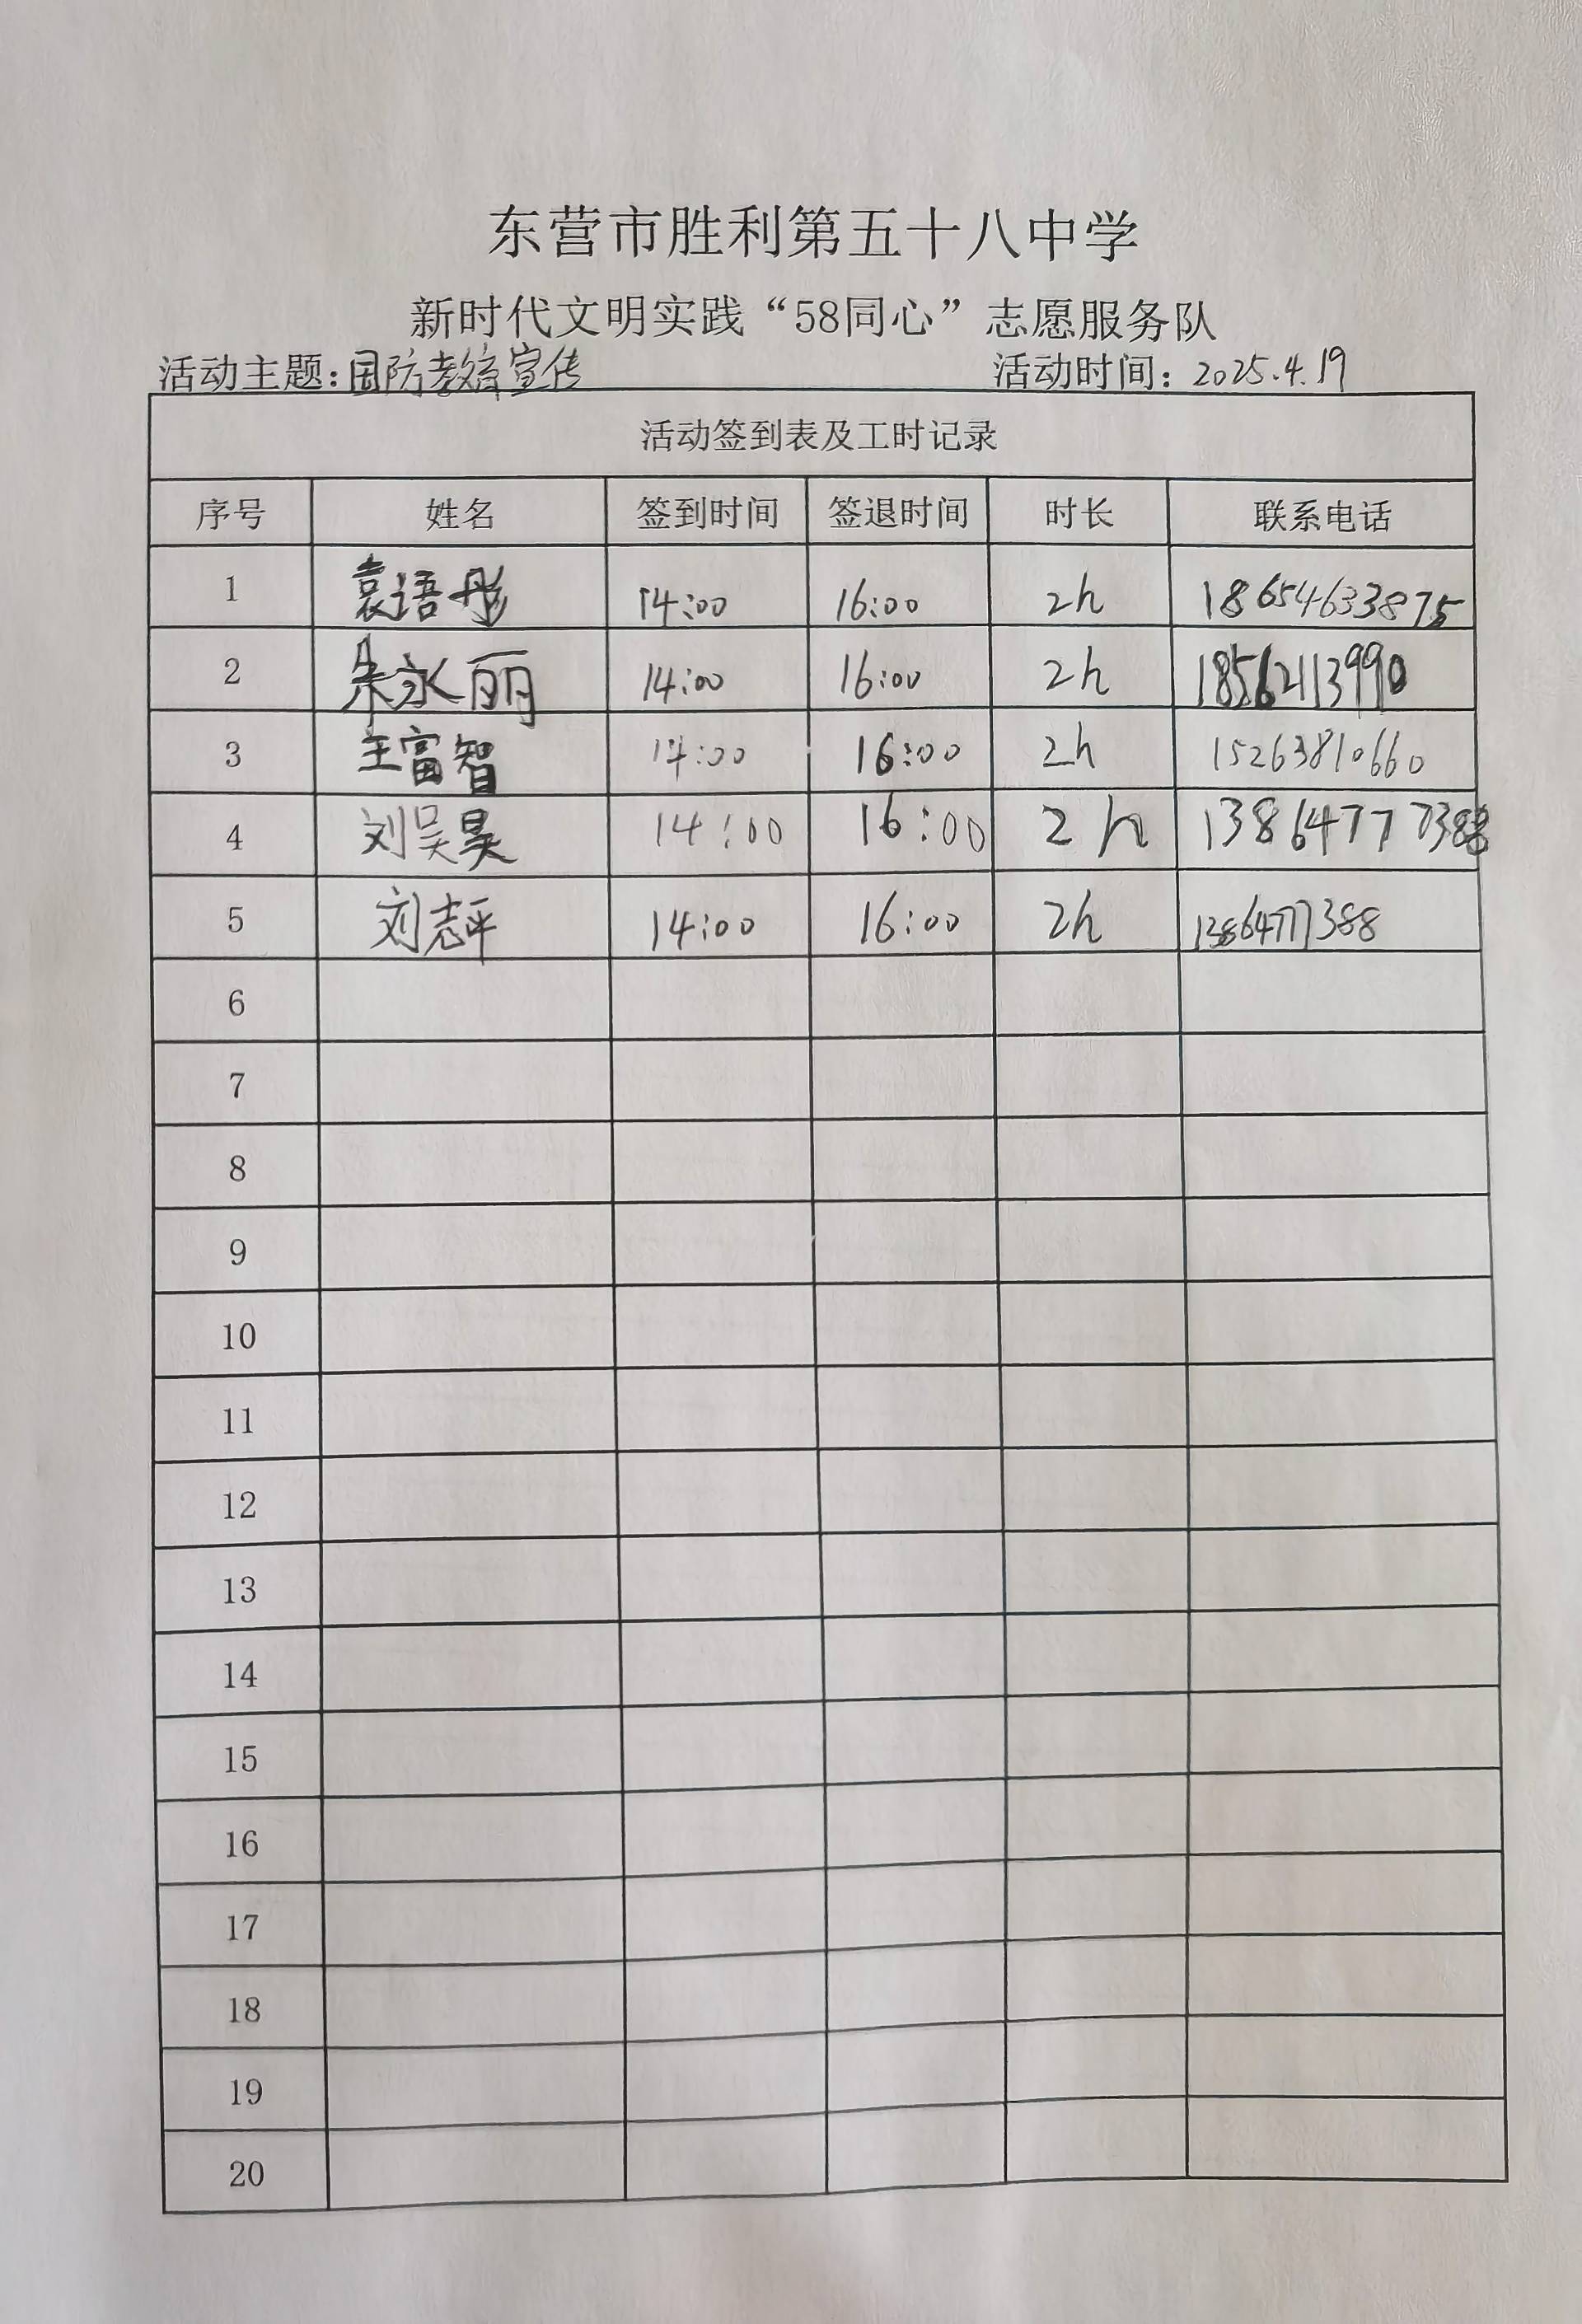 东营市胜利第五十八中学
新时代文明实践“58同心”志愿服务队
活动主题:国防教育宣传 活动时间: 2025.4.19
活动签到表及工时记录
序号 姓名 签到时间 签退时间 时长 联系电话
1 袁语彤 14:00 16:00 2h 18654633875
2 朱永丽 14:00 16:00 2h 18562113990
3 王富智 14:00 16:00 2h 15263810660
4 刘昊昊 14:00 16:00 2h
5 刘志平 14:00 16:00 2h
6
7
8
9
10
11
12
13
14
15
16
17
18
19
20